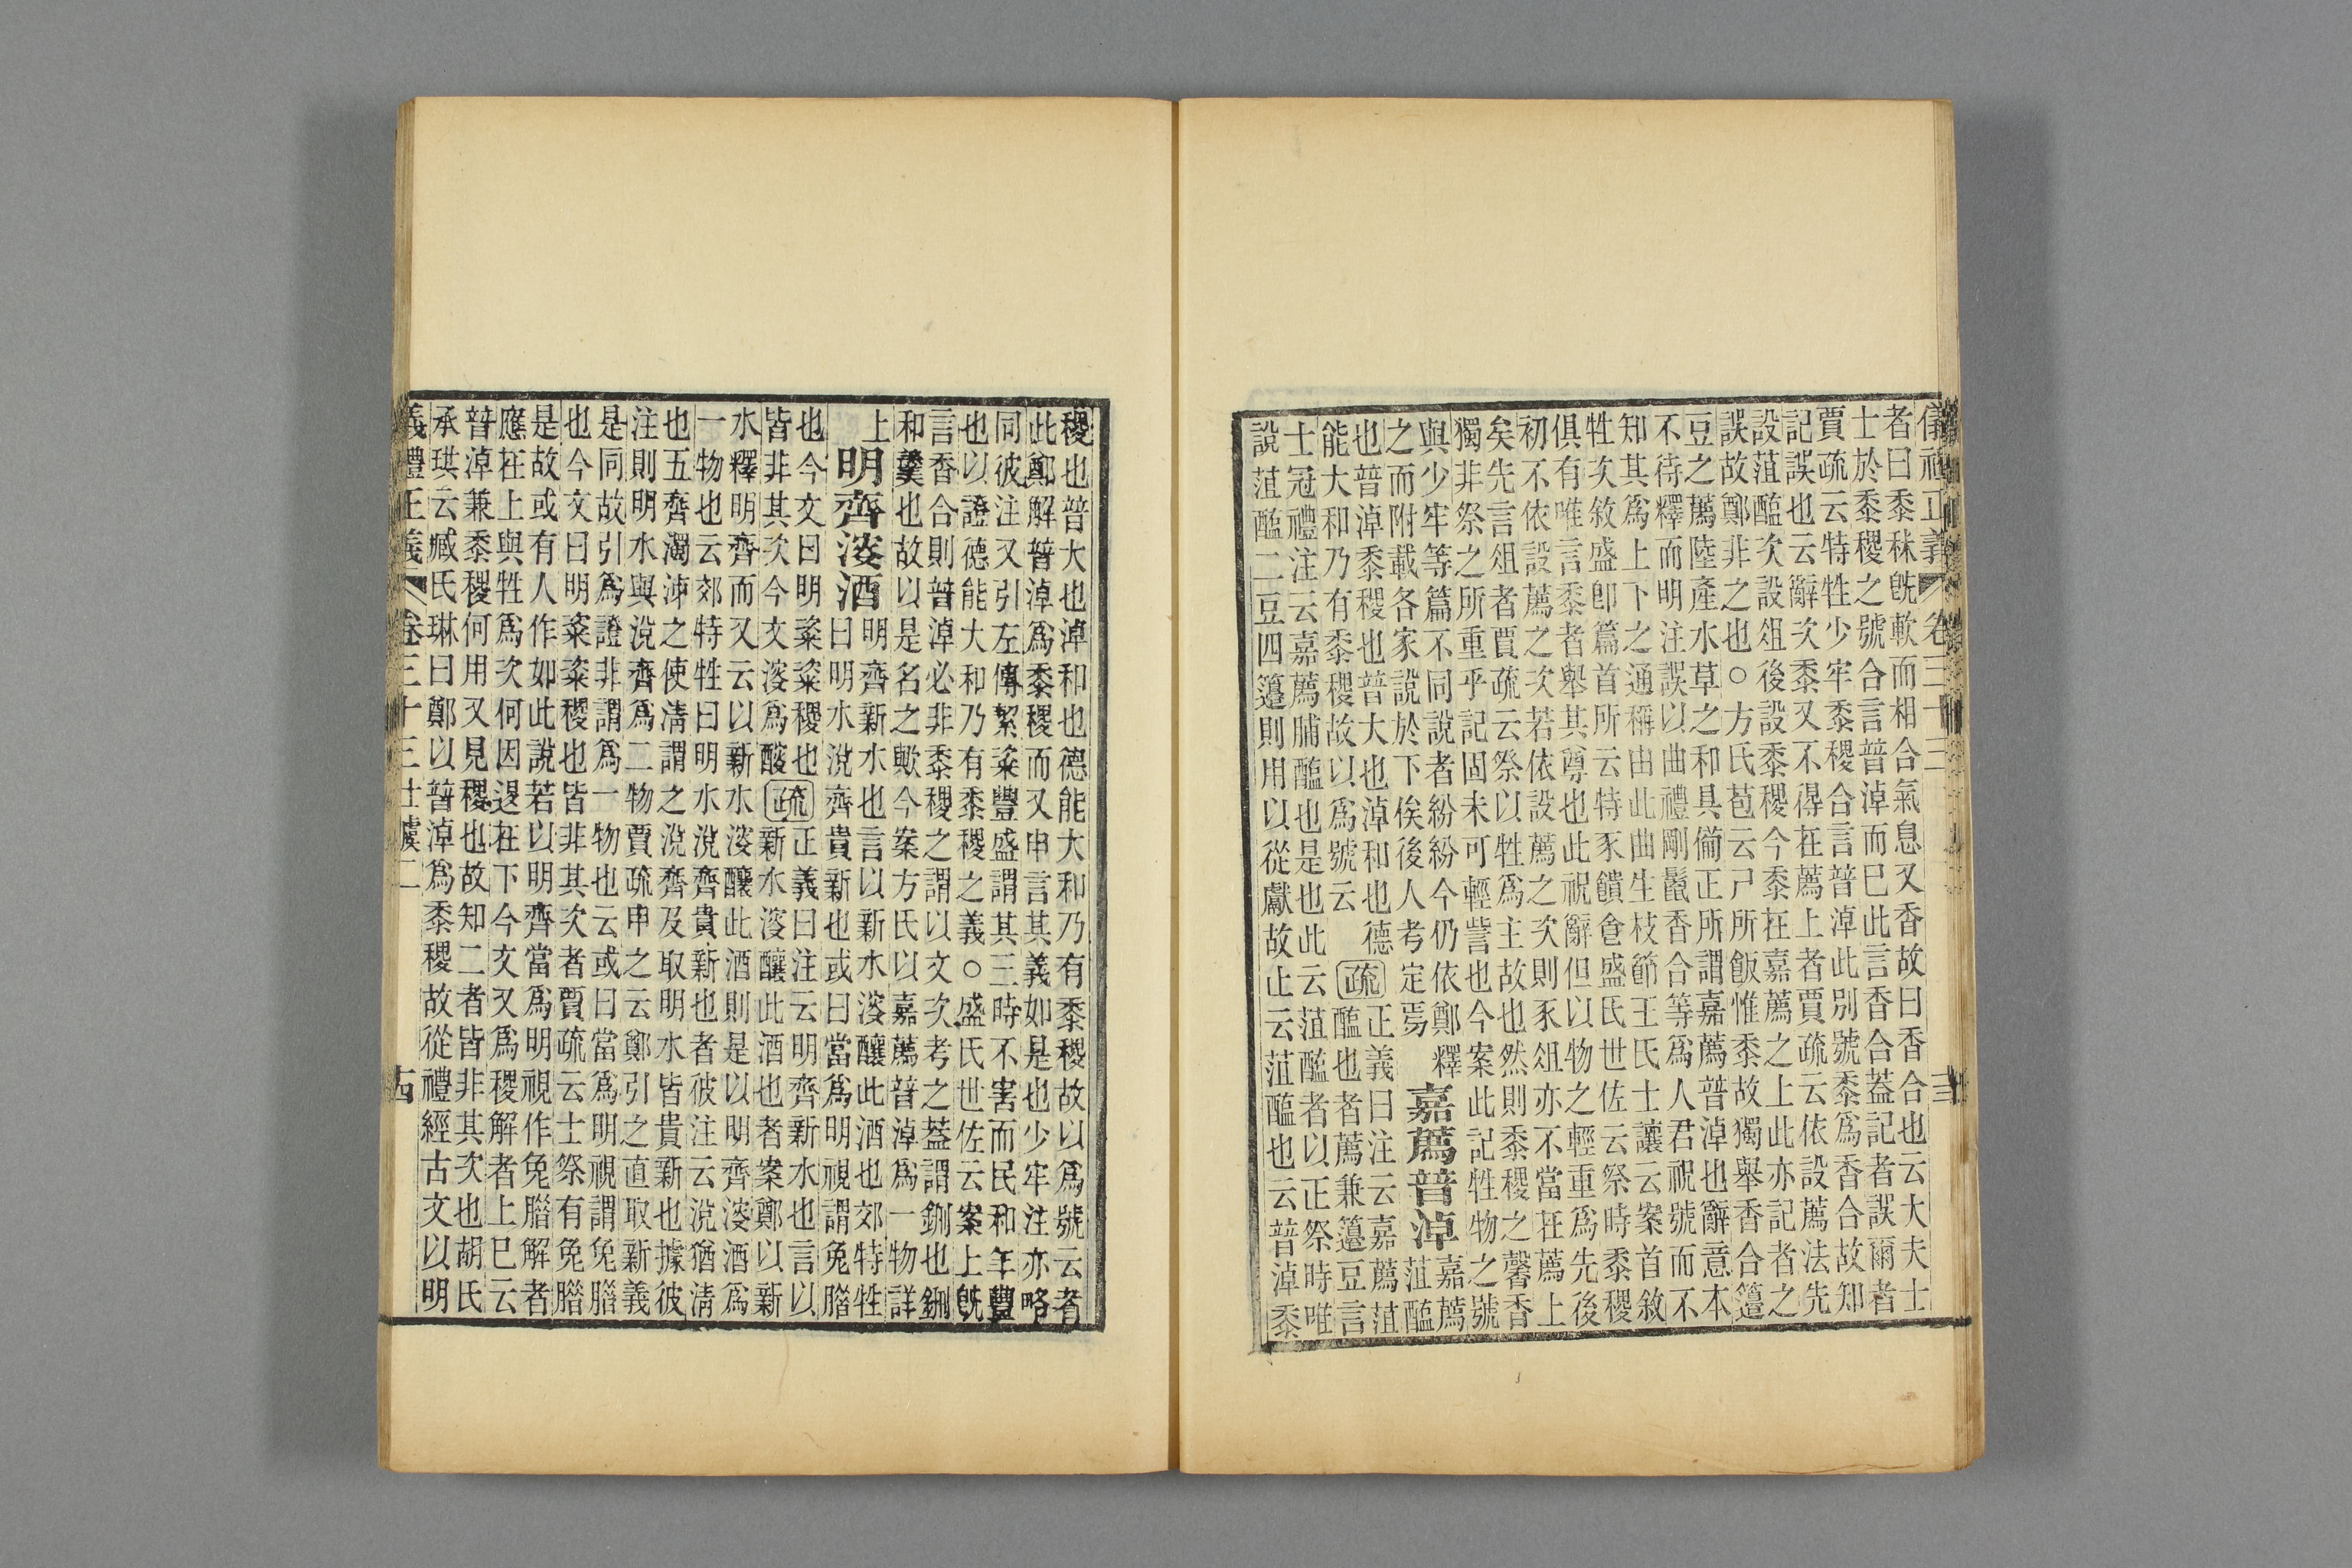 儀禮正義 卷三十三
者曰黍秫旣軟而相合氣息又香故曰香合也云大夫士
士於黍稷之號合言普淖而已此言香合蓋記者誤爾者
賈疏云特牲少牢黍稷合言普淖此別號黍爲香合故知
記誤也云辭次黍又不得在薦上者賈疏云依設薦法先
設菹醢次設俎後設黍稷今黍在嘉薦之上此亦記者之
誤故鄭非之也○方氏苞云尸所飯惟黍故獨舉香合籩
豆之薦陸產水草之和具備正所謂嘉薦普淖也辭意本
不待釋而明注誤以曲禮剛鬣香合等爲人君祝號而不
知其爲上下之通稱由此曲生枝節王氏士讓云案首敘
牲次敘盛卽篇首所云特豕饋食盛氏世佐云祭時黍稷
俱有唯言黍者舉其尊也此祝辭但以物之輕重爲先後
初不依設薦之次若依設薦之次則豕俎亦不當在薦上
矣先言俎者賈疏云祭以牲爲主故也然則黍稷之馨香
獨非祭之所重乎記固未可輕訾也今案此記牲物之號
與少牢等篇不同說者紛紛今仍依鄭釋
之而附載各家說於下俟後人考定焉
嘉薦普淖
嘉薦菹醢
也普淖黍稷也普大也淖和也德
能大和乃有黍稷故以爲號云
疏
正義曰注云嘉薦菹
醢也者薦兼籩豆言
士冠禮注云嘉薦脯醢也是也此云菹醢者以正祭時唯
說菹醢二豆四籩則用以從獻故止云菹醢也云普淖黍
稷也普大也淖和也德能大和乃有黍稷故以爲號云者
此鄭解普淖爲黍稷而又申言其義如是也少牢注亦略
同彼注又引左傳絜粢豐盛謂其三時不害而民和年豐
也以證德能大和乃有黍稷之義○盛氏世佐云案上旣
言香合則普淖必非黍稷之謂以文次考之蓋謂鉶也鉶
和羹也故以是名之歟今案方氏以嘉薦普淖爲一物詳
上
明齊溲酒
明齊新水也言以新水溲釀此酒也郊特牲
曰明水涗齊貴新也或曰當爲明視謂兔腊
也今文曰明粢粢稷也
皆非其次今文溲爲醙
疏
正義曰注云明齊新水也言以
新水溲釀此酒也者案鄭以新
水釋明齊而又云以新水溲釀此酒則是以明齊溲酒爲
一物也云郊特牲曰明水涗齊貴新也者彼注云涗猶清
也五齊濁泲之使清謂之涗齊及取明水皆貴新也據彼
注則明水與涗齊爲二物賈疏申之云鄭引之直取新義
是同故引爲證非謂爲一物也云或曰當爲明視謂兔腊
也今文曰明粢粢稷也皆非其次者賈疏云士祭有兔腊
是故或有人作如此說若以明齊當爲明視作兔腊解者
應在上與牲爲次何因退在下今文又爲稷解者上已云
普淖兼黍稷何用又見稷也故知二者皆非其次也胡氏
承珙云臧氏琳曰鄭以普淖爲黍稷故從禮經古文以明
義禮正義 卷三十三 士虞二